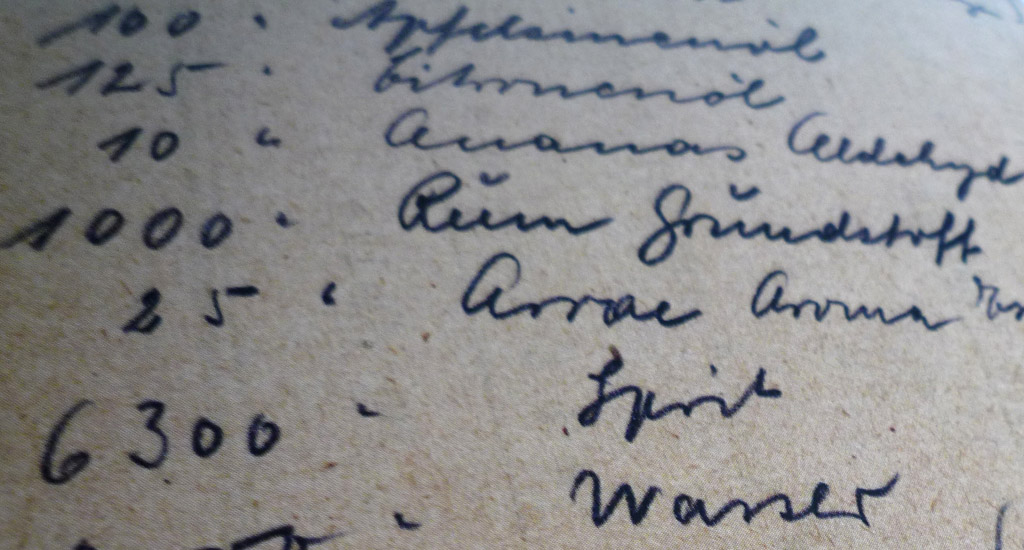 100 " Apfelsinenöl
125 " Citronenöl
10 " Ananas Aldehyd
1000 " Rum Grundstoff
25 " Arrac Aroma
6300 " Sprit
" Wasser